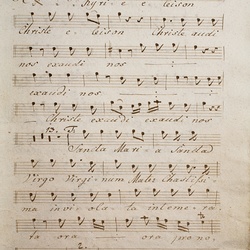 Kyri - e e - leison
Christe e - leison Christe audi
nos exaudi nos - - -
exaudi nos - - -
- Christe exaudi exaudi - nos
T:
Sancta Mari - a Sancta
Virgo Virginum Mater Christi
ma inviola - ta intemera -
ta ora - - ora pro no,